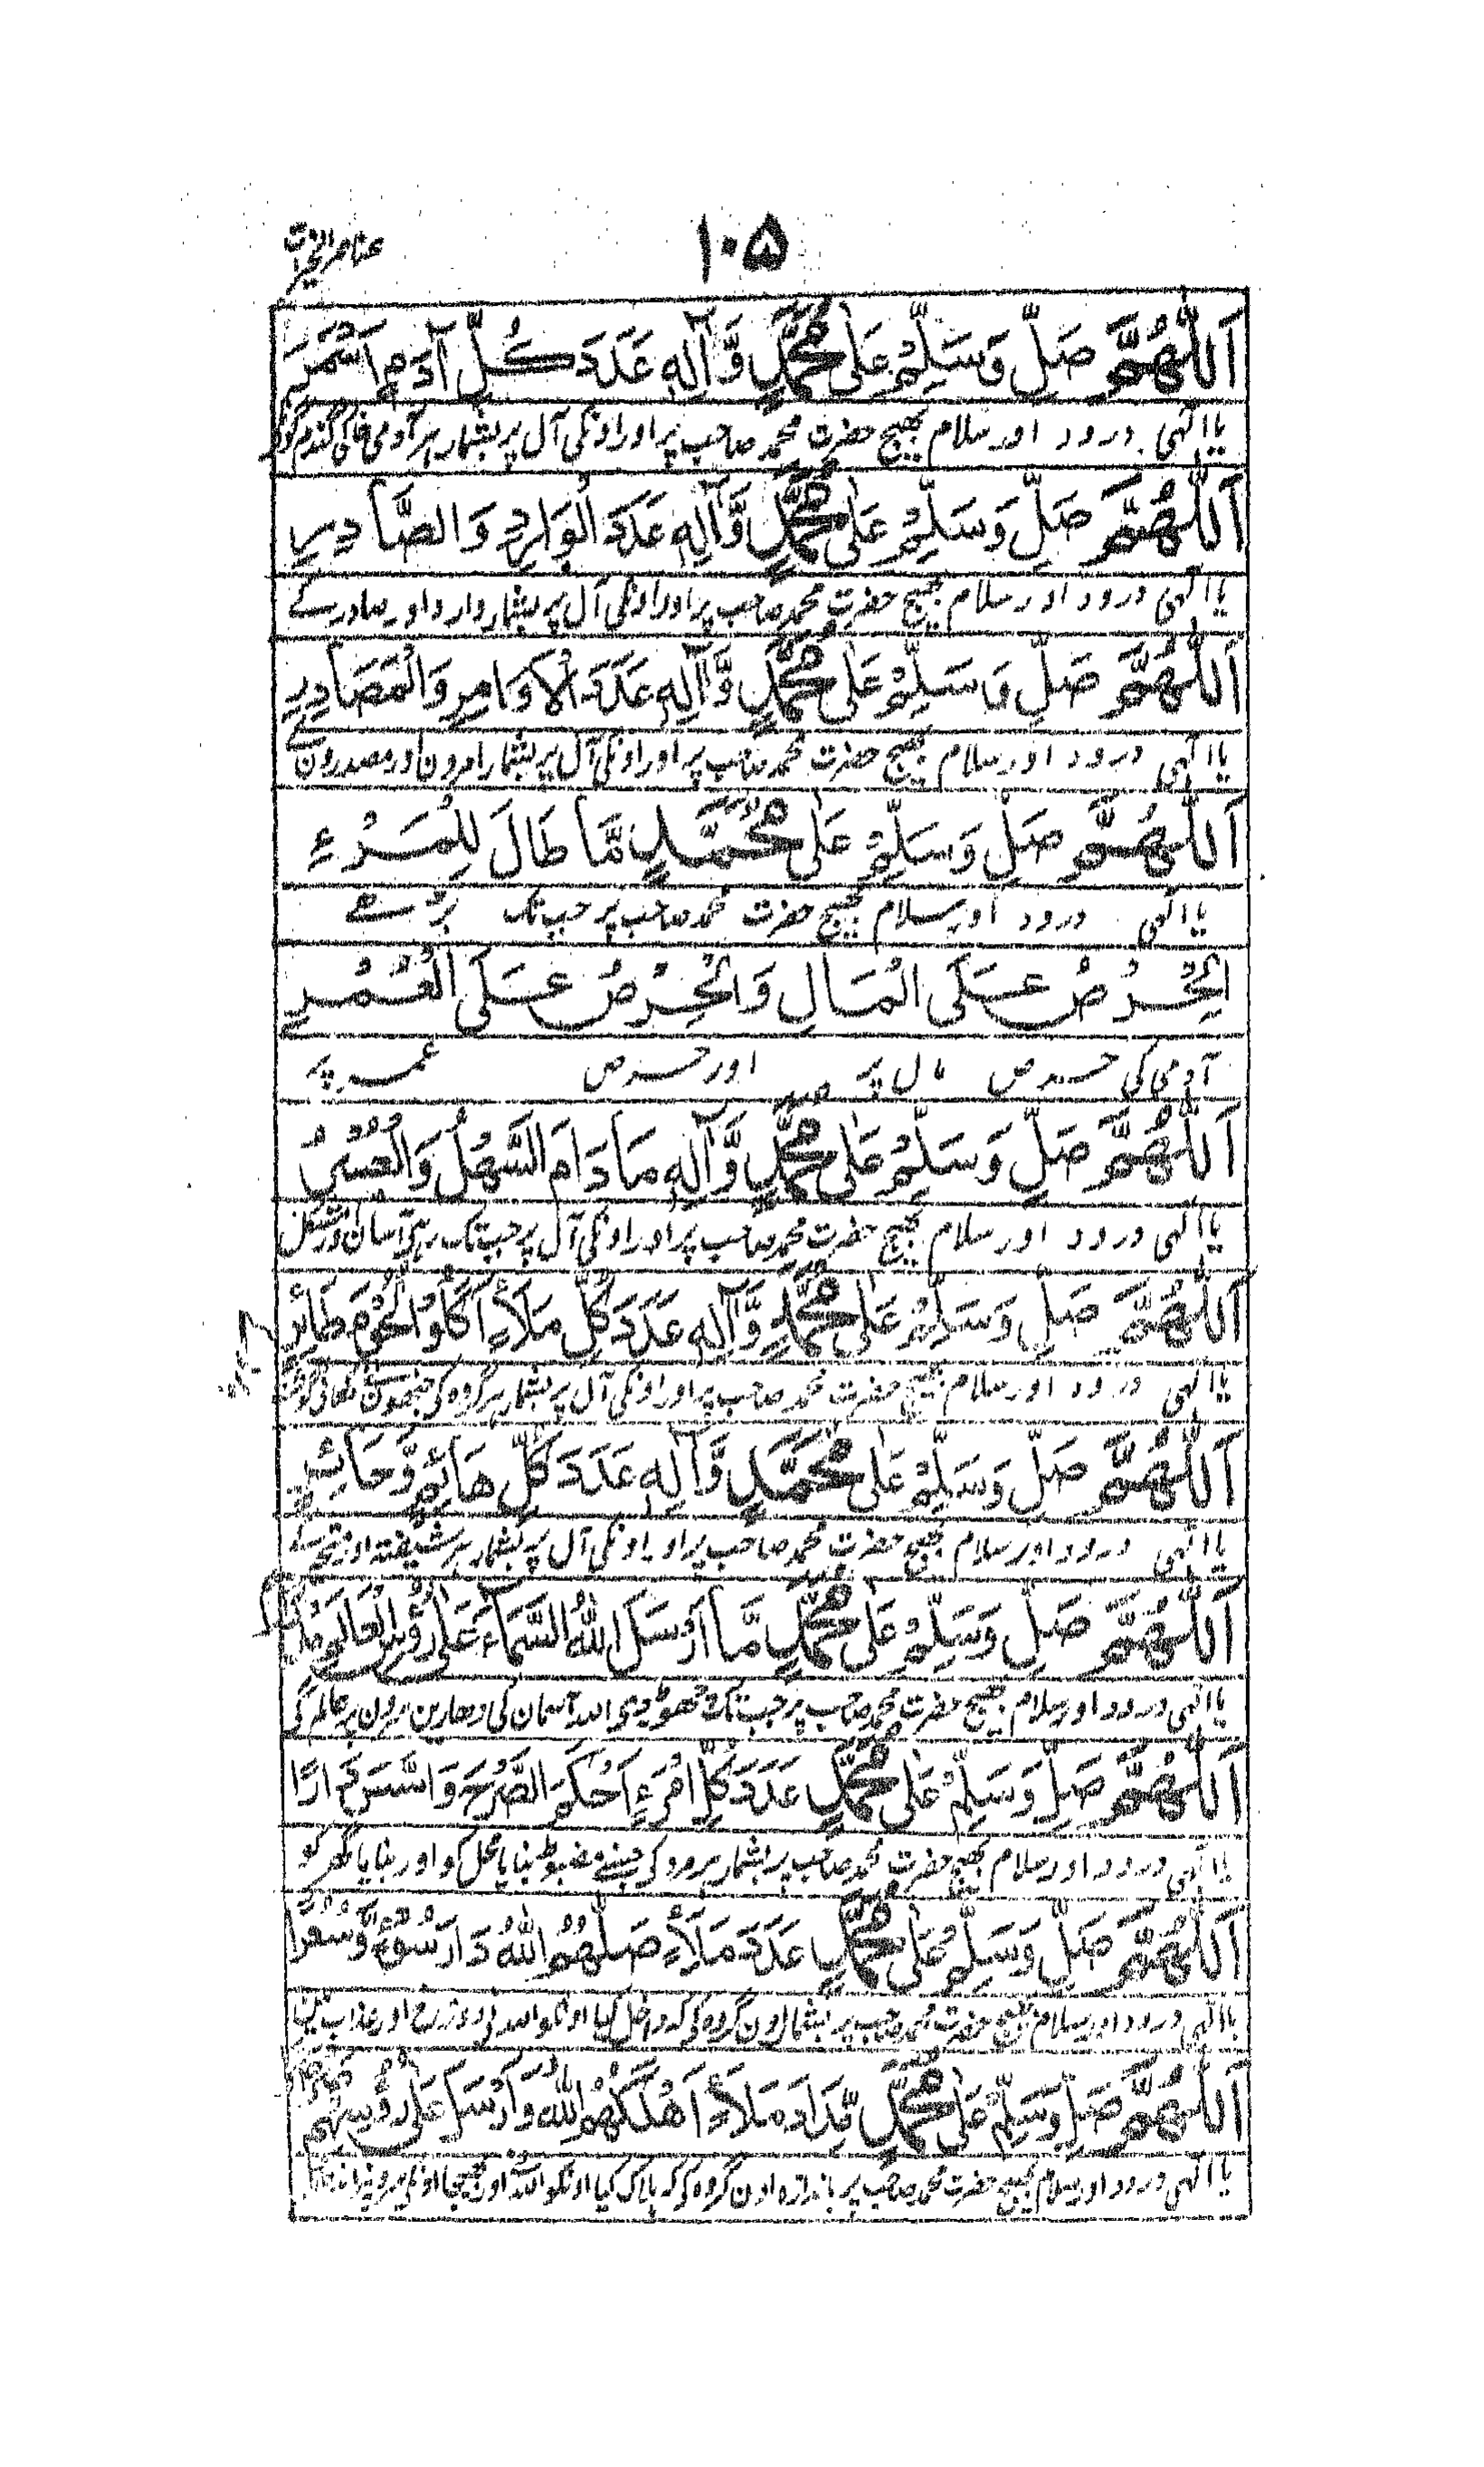 ۱۰۵
عناصر الخیرات
اَللّٰهُمَّ صَلِّ وَسَلِّمْ عَلٰی مُحَمَّدٍ وَّآلِهٖ عَدَدَ كُلِّ آدَمٍ اَسْمَرَ
یا الٰہی درود اور سلام بھیج حضرت محمد صاحب پر اور اونکی آل پر بشمار ہر آدمی خاکی گندم گون
اَللّٰهُمَّ صَلِّ وَسَلِّمْ عَلٰی مُحَمَّدٍ وَّآلِهٖ عَدَدَ الْوَارِدِ وَالصَّادِرِ
یا الٰہی درود اور سلام بھیج حضرت محمد صاحب پر اور اونکی آل پر بشمار وارد اور صادر کے
اَللّٰهُمَّ صَلِّ وَسَلِّمْ عَلٰی مُحَمَّدٍ وَّآلِهٖ عَدَدَ الْاَوَامِرِ وَالْمَصَادِرِ
یا الٰہی درود اور سلام بھیج حضرت محمد صاحب پر اور اونکی آل پر بشمار امرون اور مصدرون کے
اَللّٰهُمَّ صَلِّ وَسَلِّمْ عَلٰی مُحَمَّدٍ مَّا طَالَ لِلْمَرْءِ
یا الٰہی درود اور سلام بھیج حضرت محمد صاحب پر جب تک بڑھے
الْحِرْصُ عَلَی الْمَالِ وَالْحِرْصُ عَلَی الْعُمُرِ
آدمی کی حرص مال پر اور حرص عمر پر
اَللّٰهُمَّ صَلِّ وَسَلِّمْ عَلٰی مُحَمَّدٍ وَّآلِهٖ مَا دَامَ السَّهْلُ وَالْعُسْرُ
یا الٰہی درود اور سلام بھیج حضرت محمد صاحب پر اور اونکی آل پر جب تک رہی آسان اور مشکل
اَللّٰهُمَّ صَلِّ وَسَلِّمْ عَلٰی مُحَمَّدٍ وَّآلِهٖ عَدَدَ كُلِّ مَلَاءٍ اَكَلُوْا لُحُوْمَ طَائِرٍ
یا الٰہی درود اور سلام بھیج حضرت محمد صاحب پر اور اونکی آل پر بشمار ہر گروہ کی جنھون نے کھائی گوشت
اَللّٰهُمَّ صَلِّ وَسَلِّمْ عَلٰی مُحَمَّدٍ وَّآلِهٖ عَدَدَ كُلِّ هَائِمٍ وَّحَائِرٍ
یا الٰہی درود اور سلام بھیج حضرت محمد صاحب پر اور اونکی آل پر بشمار ہر شیفتہ اور متحیر کے
اَللّٰهُمَّ صَلِّ وَسَلِّمْ عَلٰی مُحَمَّدٍ مَّا اَرْسَلَ اللّٰهُ السَّمَآءَ عَلٰی رُؤُسِ الْعَالَمِ
یا الٰہی درود اور سلام بھیج حضرت محمد صاحب پر جب تک چھوڑ دی اللہ آسمان کی دھارین سرون پر عالم کی
اَللّٰهُمَّ صَلِّ وَسَلِّمْ عَلٰی مُحَمَّدٍ عَدَدَ كُلِّ امْرَءٍ اَحْكَمَ الصَّرْحَ وَاَسَّسَ دَارًا
یا الٰہی درود اور سلام بھیج حضرت محمد صاحب پر بشمار ہر مرد کی جسنے مضبوط بنایا محل کو اور بنایا گھر کو
اَللّٰهُمَّ صَلِّ وَسَلِّمْ عَلٰی مُحَمَّدٍ عَدَدَ مَلَاءٍ صَلٰهُمُ اللّٰهُ دَارَ سُوْءٍ وَّسُعُرًا
یا الٰہی درود اور سلام بھیج حضرت محمد صاحب پر بشمار اون گروہ کی کہ داخل کیا اونکو اللہ نی دوزخ اور عذاب
اَللّٰهُمَّ صَلِّ وَسَلِّمْ عَلٰی مُحَمَّدٍ مِّدَادَ مَلَاءٍ اَهْلَكَهُمُ اللّٰهُ وَاَرْسَلَ عَلٰی رُؤُسِهِمْ
یا الٰہی درود اور سلام بھیج حضرت محمد صاحب پر باندازہ اون گروہ کی کہ ہلاک کیا اونکو اللہ نے اور بھیجا اونکی سرون پر